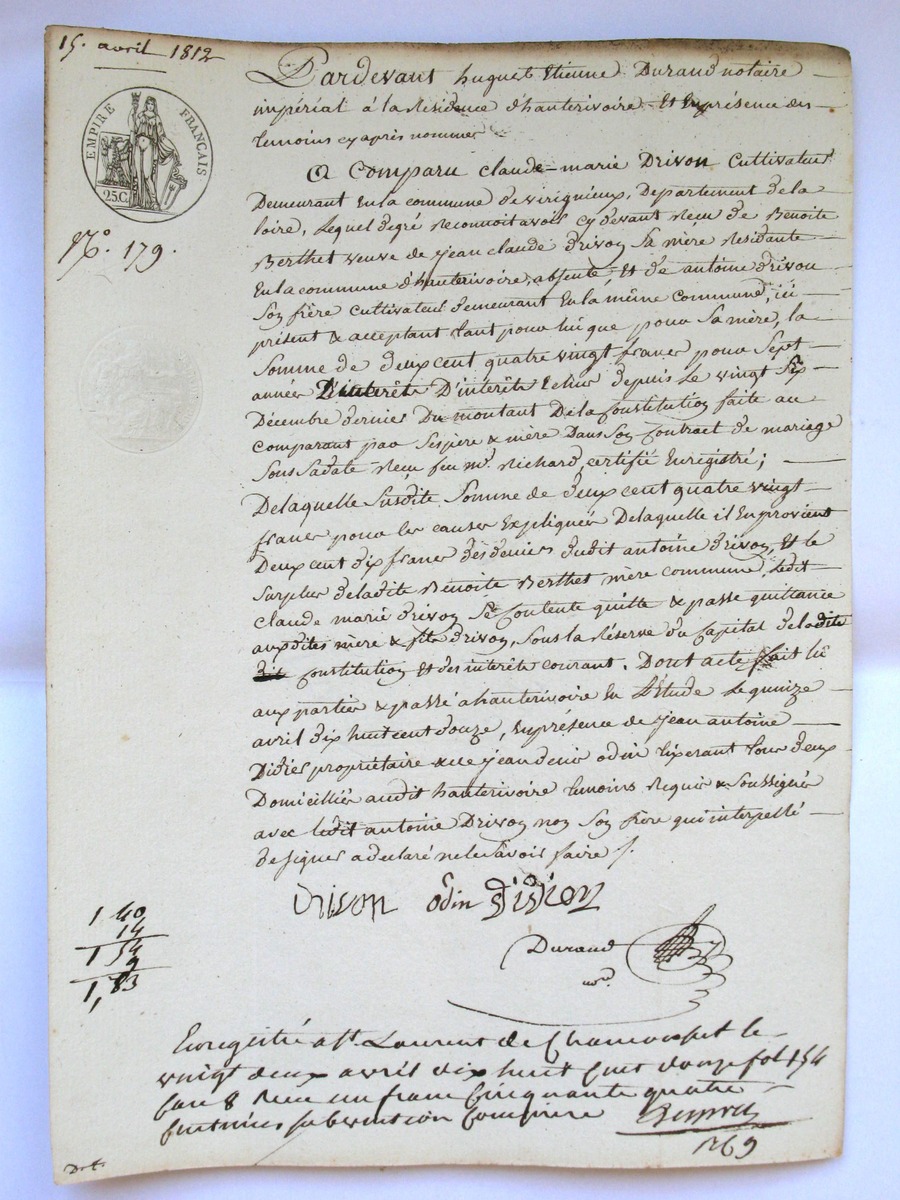 15. avril 1812
EMPIRE FRANÇAIS
25 C.
N.o 179.
Pardevant huguet Etienne Durand notaire
impérial à la Residence d'hauterivoire Et En présence des
temoins cy après nommés
A Comparu claude-marie Drivon Cultivateur
Demeurant En la commune de virignieux, Departement de la
loire, Lequel degré Reconnoit avoir cy devant Reçu de Benoite
Berthet veuve de jean claude drivon Sa mère Residante
En la commune d'hauterivoire, absente, Et de antoine drivon
Son frère cultivateur demeurant En la même commune, ici
présent & acceptant tant pour lui que pour Sa mère, la
Somme de deux cent quatre vingt francs pour Sept
année D'interêts D'interêts Echus depuis Le vingt Six
Décembre dernier Du montant De la Constitution faite au
Comparant par Ses père & mère Dans Son Contract de mariage
Sous Sa date Reçu feu me. Richard, certifié Enregistré;
De laquelle Susdite Somme de deux cent quatre vingt
francs pour les causes Expliquées De laquelle il En provient
Deux cent dix francs des deniers dudit antoine drivon, Et le
Surplus de ladite Benoite Berthet mère commune, Ledit
claude marie drivon Se Contente quitte & passe quittance
auxdites mère & fils drivon, Sous la Réserve du Capital de ladite
dit Constitution Et des interêts courant. Dont acte fait lu
aux parties & passé a hauterivoire En L'Étude Le quinze
avril dix huit cent douze, En présence de jean antoine
Didier propriétaire & de jean denis odin tixerant tous deux
Domicilliés audit hauterivoire temoins Requis & Soussignés
avec ledit antoine Drivon non Son frère qui interpellé
de signer a declaré ne le Savoir faire
drivon odin
Durand
nre.
1 40
14
1 54
9
1,83
Enregistré a St. Laurent de Chamousset le
vingt deux avril dix huit cent douze fol 154
Case 8 Recu un franc Cinquante quatre
Centimes subvention Comprise
269